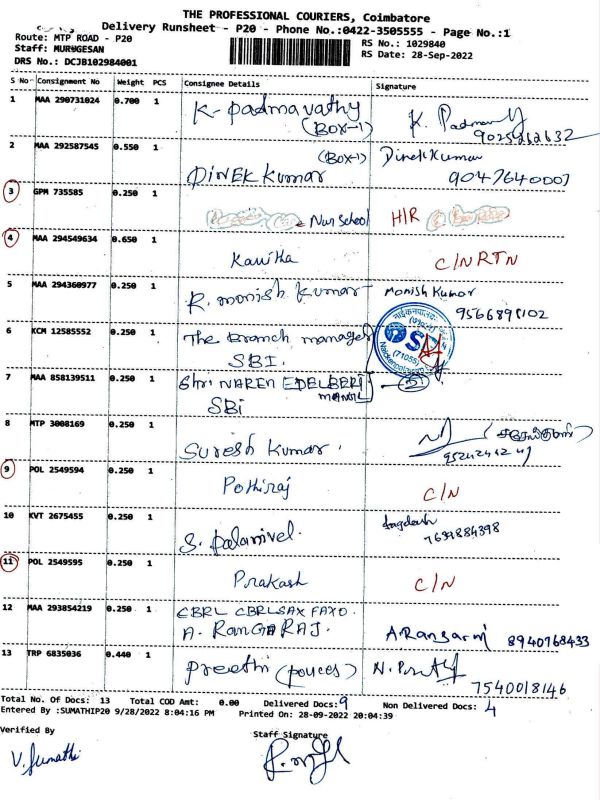 THE PROFESSIONAL COURIERS, Coimbatore
Delivery Runsheet - P20 - Phone No.:0422-3505555 - Page No.:1
Route: MTP ROAD - P20
RS No.: 1029840
Staff: MURUGESAN
RS Date: 28-Sep-2022
DRS No.: DCJB102984001
S No Consignment No Weight PCS Consignee Details Signature
1 MAA 290731024 0.700 1 K- Padmavathy K. Padma
(BOX-1) 9025262632
2 MAA 292587545 0.550 1 (BOX-1) Dinesh Kumar
DINEK Kumar 9047640007
3 GPM 735585 0.250 1 Nur School H/R
4 MAA 294549634 0.650 1
Kavitha C/N RTN
5 MAA 294360977 0.250 1 R. monish kumar Monish Kumar
9566898102
6 KCM 12585552 0.250 1 The Branch manager
SBI.
7 MAA 858139511 0.250 1 Shri NAREN EDELBERI
SBI
8 MTP 3008169 0.250 1
Suresh Kumar.
9 POL 2549594 0.250 1
Pothiraj C/N
10 KVT 2675455 0.250 1
S. Palanivel. 7639884398
11 POL 2549595 0.250 1
Prakash C/N
12 MAA 293854219 0.250 1 CBRL CBRLSAX FAXO.
A. RANGARAJ. 8940768433
13 TRP 6835036 0.440 1 Preethi (pouces)
7540018146
Total No. Of Docs: 13 Total COD Amt: 0.00 Delivered Docs: 9 Non Delivered Docs: 4
Entered By :SUMATHIP20 9/28/2022 8:04:16 PM Printed On: 28-09-2022 20:04:39
Verified By Staff Signature
V. Sumathi